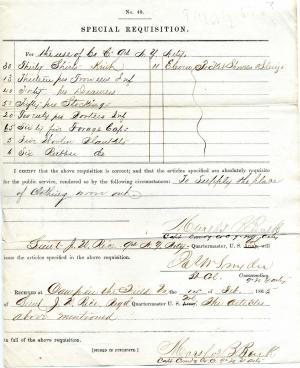 No. 40.
SPECIAL REQUISITION.
For the use of Co. C. 9th N.Y. Arty.
30 Thirty Shirts Knit 11 Eleven
13 Thirteen prs Trowsers Inf
40 Forty prs Drawers
50 Fifty prs Stockings
20 Twenty prs Footees Inf
65 Sixty five Forage Caps
5 Five Woolen Blankets
6 Six Rubber do
I CERTIFY that the above requisition is correct; and that the articles specified are absolutely requisite
for the public service, rendered so by the following circumstances: To supply the place
of Clothing worn out
Lieut J. V. Rice 9th N.Y. Arty Quartermaster, U. S. Army, will
issue the articles specified in the above requisition.
Snyder
Lt Col. Commanding
RECEIVED at Camp in the Field Va the of 1865 of
Lieut J. V. Rice Regtl Quartermaster U. S. The articles
above mentioned
in full of the above requisition.
[SIGNED IN DUPLICATE.]
Marshall B. Burk
Capt Comdg Co. C 9th N.Y. Arty